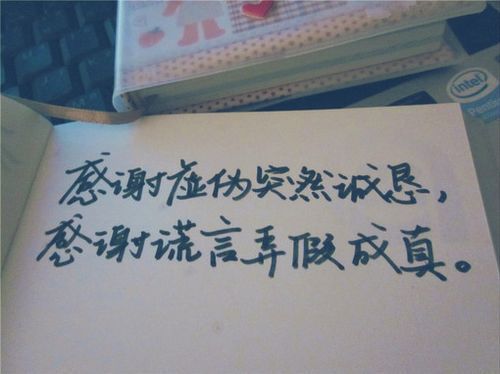 感谢虚伪突然诚恳，
感谢谎言弄假成真。
intel